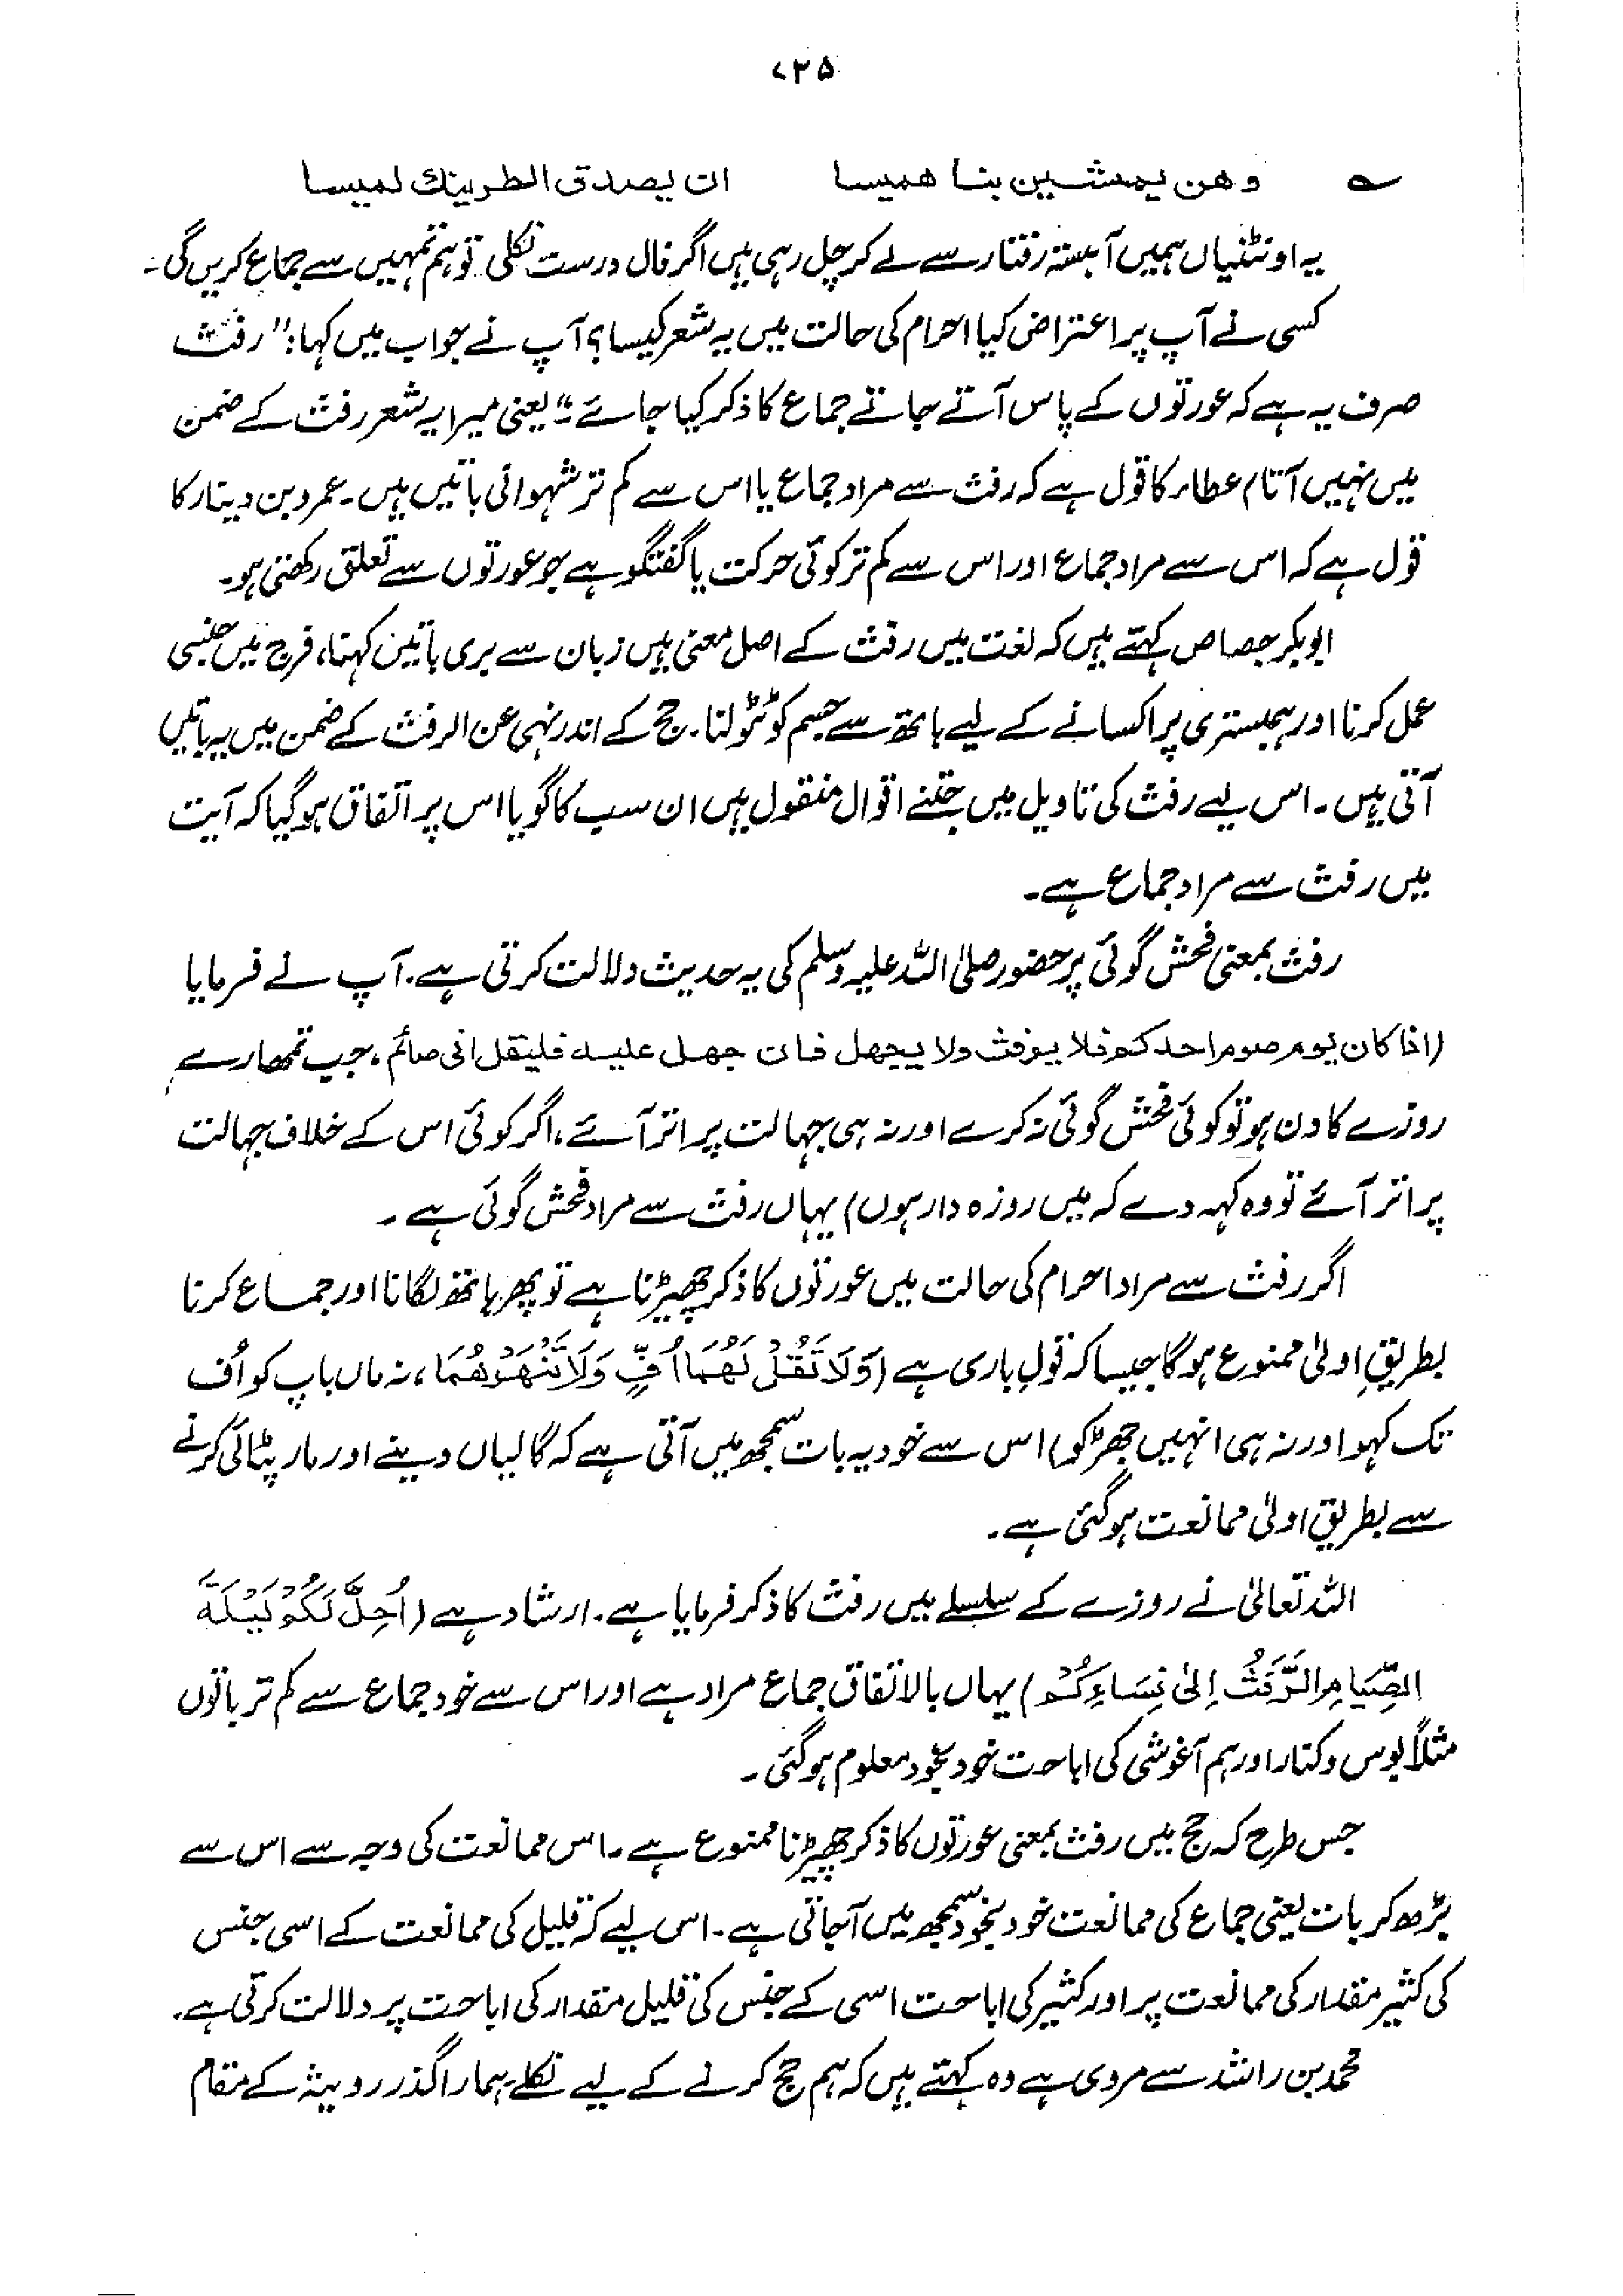 ۷۳۵
وهن يمشين بنا هميسا ان يصدق الطير ننك لميسا
یہ اونٹنیاں ہمیں آہستہ رفتار سے لے کر چل رہی ہیں اگر فال درست نکلی تو ہم تمہیں سے جماع کریں گی۔
کسی نے آپ پر اعتراض کیا احرام کی حالت میں یہ شعر کیسا؟ آپ نے جواب میں کہا: "رفث
صرف یہ ہے کہ عورتوں کے پاس آتے جاتے جماع کا ذکر کیا جائے"۔ یعنی میرا یہ شعر رفث کے ضمن
میں نہیں آتا۔ عطاء کا قول ہے کہ رفث سے مراد جماع یا اس سے کم تر شہوانی باتیں ہیں۔ عمرو بن دینار کا
قول ہے کہ اس سے مراد جماع اور اس سے کم تر کوئی حرکت یا گفتگو ہے جو عورتوں سے تعلق رکھتی ہو۔
ابوبکر جصاص کہتے ہیں کہ لغت میں رفث کے اصل معنی ہیں زبان سے بری باتیں کہنا، فرج میں جنسی
عمل کرنا اور ہمبستری پر اکسانے کے لیے ہاتھ سے جسم کو ٹٹولنا۔ حج کے اندر نہی عن الرفث کے ضمن میں یہ باتیں
آتی ہیں۔ اس لیے رفث کی تاویل میں جتنے اقوال منقول ہیں ان سب کا گویا اس پر اتفاق ہو گیا کہ آیت
میں رفث سے مراد جماع ہے۔
رفث بمعنی فحش گوئی پر حضور صلی اللہ علیہ وسلم کی یہ حدیث دلالت کرتی ہے۔ آپ نے فرمایا
(اذا كان يوم صوم احدكم فلا يرفث ولا يجهل فان جهل عليه فليقل انى صائم، جب تمھارے
روزے کا دن ہو تو کوئی فحش گوئی نہ کرے اور نہ ہی جہالت پر اتر آئے، اگر کوئی اس کے خلاف جہالت
پر اتر آئے تو وہ کہہ دے کہ میں روزہ دار ہوں) یہاں رفث سے مراد فحش گوئی ہے۔
اگر رفث سے مراد احرام کی حالت میں عورتوں کا ذکر چھیڑنا ہے تو پھر ہاتھ لگانا اور جماع کرنا
بطریقِ اولیٰ ممنوع ہوگا جیسا کہ قولِ باری ہے (وَلَا تَقُلْ لَهُمَا اُفٍّ وَلَا تَنْهَرْهُمَا، نہ ماں باپ کو اُف
تک کہو اور نہ ہی انہیں جھڑکو) اس سے خود یہ بات سمجھ میں آتی ہے کہ گالیاں دینے اور مار پٹائی کرنے
سے بطریق اولیٰ ممانعت ہوگئی ہے۔
اللہ تعالیٰ نے روزے کے سلسلے میں رفث کا ذکر فرمایا ہے۔ ارشاد ہے (اُحِلَّ لَكُمْ لَيْلَةَ
الصِّيَامِ الرَّفَثُ اِلٰى نِسَاءِكُمْ) یہاں بالاتفاق جماع مراد ہے اور اس سے خود جماع سے کم تر باتوں
مثلاً بوس و کنار اور ہم آغوشی کی اباحت خود بخود معلوم ہوگئی۔
جس طرح کہ حج میں رفث بمعنی عورتوں کا ذکر چھیڑنا ممنوع ہے۔ اس ممانعت کی وجہ سے اس سے
بڑھ کر بات یعنی جماع کی ممانعت خود بخود سمجھ میں آجاتی ہے۔ اس لیے کہ قلیل کی ممانعت کے اسی جنس
کی کثیر مقدار کی ممانعت پر اور کثیر کی اباحت اسی کے جنس کی قلیل مقدار کی اباحت پر دلالت کرتی ہے۔
محمد بن راشد سے مروی ہے وہ کہتے ہیں کہ ہم حج کرنے کے لیے نکلے ہمارا گذر رویثہ کے مقام